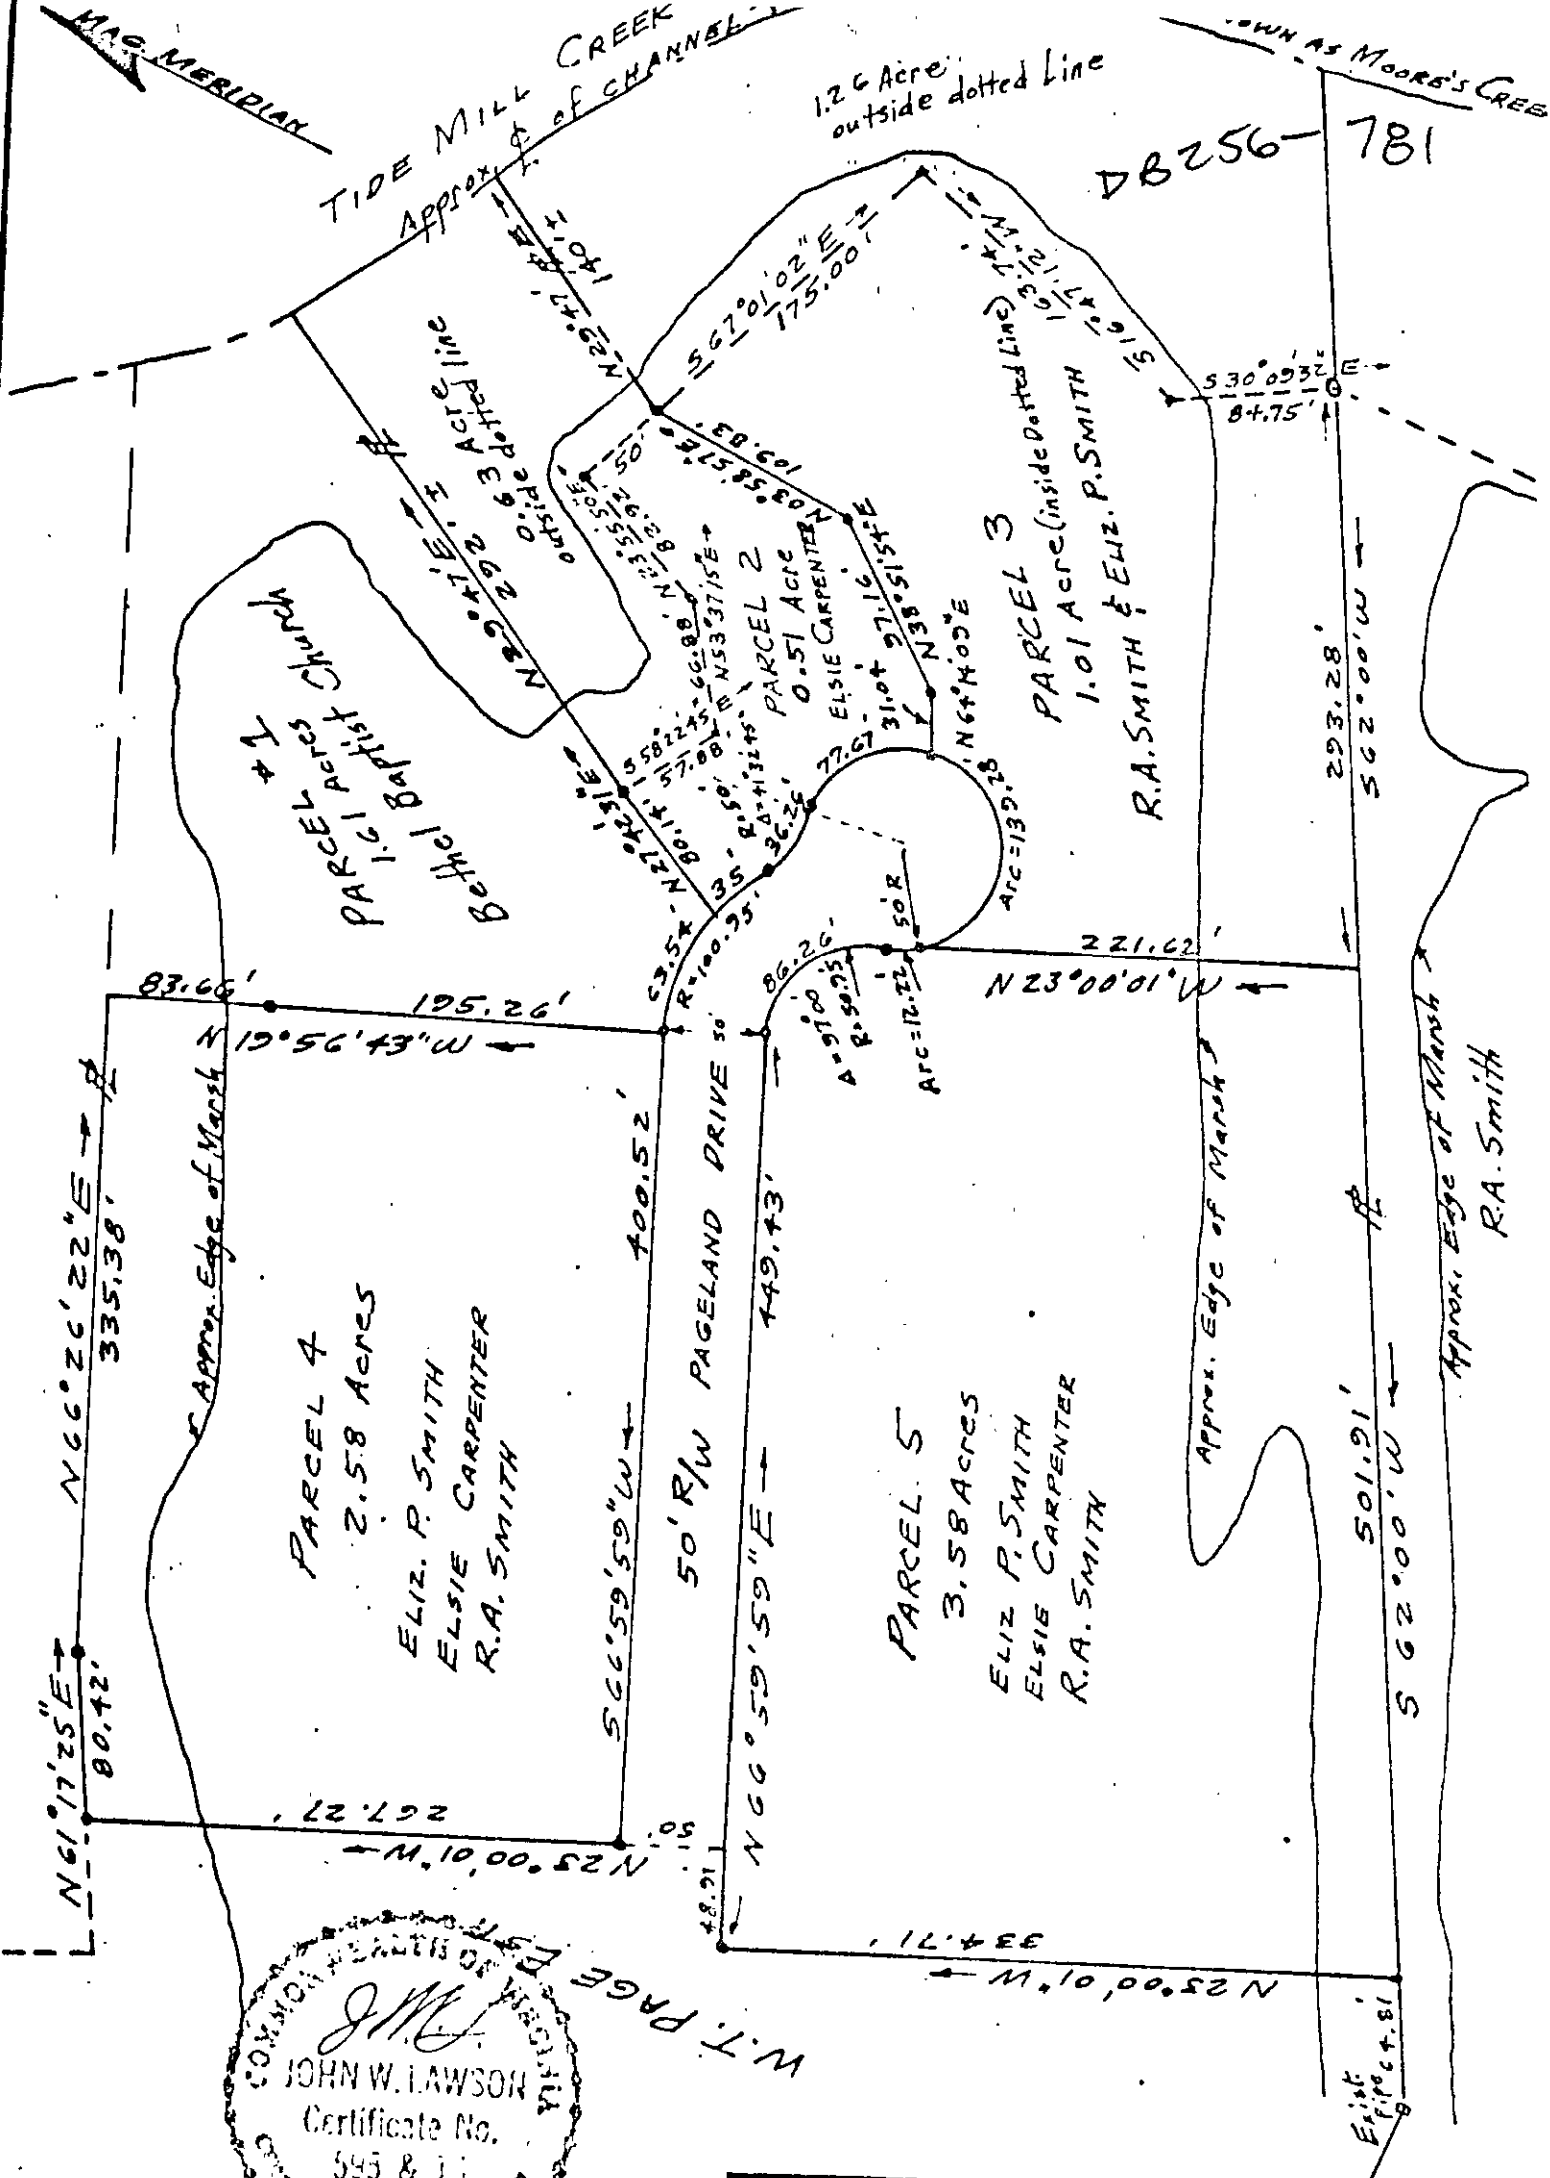 MAG. MERIDIAN
TIDE MILL CREEK
Approx. ℄ of CHANNEL
1.26 Acre
outside dotted Line
AS MOORE'S CREE
DB 256 - 781
N 29° 47' E
140' ±
S 67° 01' 02" E
175.00'
S 16° 47' 12" W
163.74'
S 30° 09' 32" E
84.75'
N 29° 47' E
292' ±
0.63 Acre
outside dotted line
50'
N 23° 55' 50" E
82.92'
N 03° 58' 57" E
109.83'
66.88'
N 53° 37' 15" E
PARCEL #1
1.61 Acres
Bethel Baptist Church
PARCEL 2
0.51 Acre
ELSIE CARPENTER
97.16'
N 38° 51' 54" E
31.04'
N 64° 14' 09" E
PARCEL 3
1.01 Acre (inside Dotted Line)
R.A. SMITH & ELIZ. P. SMITH
S 58° 22' 45" E
57.88'
N 27° 42' 31" E
80.14'
R=50'
Δ=41° 32' 45"
36.26'
77.67'
35'
63.54'
R=100.95'
86.26'
Δ=97° 00'
R=50.95'
50' R
Arc=12.22'
Arc=139.28'
293.28'
S 62° 00' W
221.62'
N 23° 00' 01" W
83.66'
195.26'
N 19° 56' 43" W
N 66° 26' 22" E
335.38'
Approx. Edge of Marsh
PARCEL 4
2.58 Acres
ELIZ. P. SMITH
ELSIE CARPENTER
R.A. SMITH
400.52'
S 66° 59' 59" W
50' R/W PAGELAND DRIVE 50'
449.43'
N 66° 59' 59" E
PARCEL 5
3.58 Acres
ELIZ P. SMITH
ELSIE CARPENTER
R.A. SMITH
Approx. Edge of Marsh
501.91'
S 62° 00' W
Approx. Edge of Marsh
R.A. Smith
N 61° 17' 25" E
80.42'
267.27'
N 23° 00' 01" W
50'
48.91
334.71'
N 23° 00' 01" W
Exist. Pipe
64.81'
W.T. PAGE EST.
COMMONWEALTH OF VIRGINIA
JOHN W. LAWSON
Certificate No.